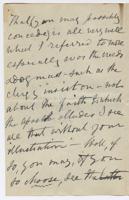 That you may possibly
concede is all very well
what I referred to more
especially was the needs
must - such as the
clergy insist on - not
about the faith to which
the apostle alludes I see
all that without your
illustration - Well, if
so, you may, if you
so choose, see that